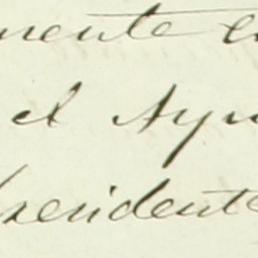 mente e
el Ayu
residente